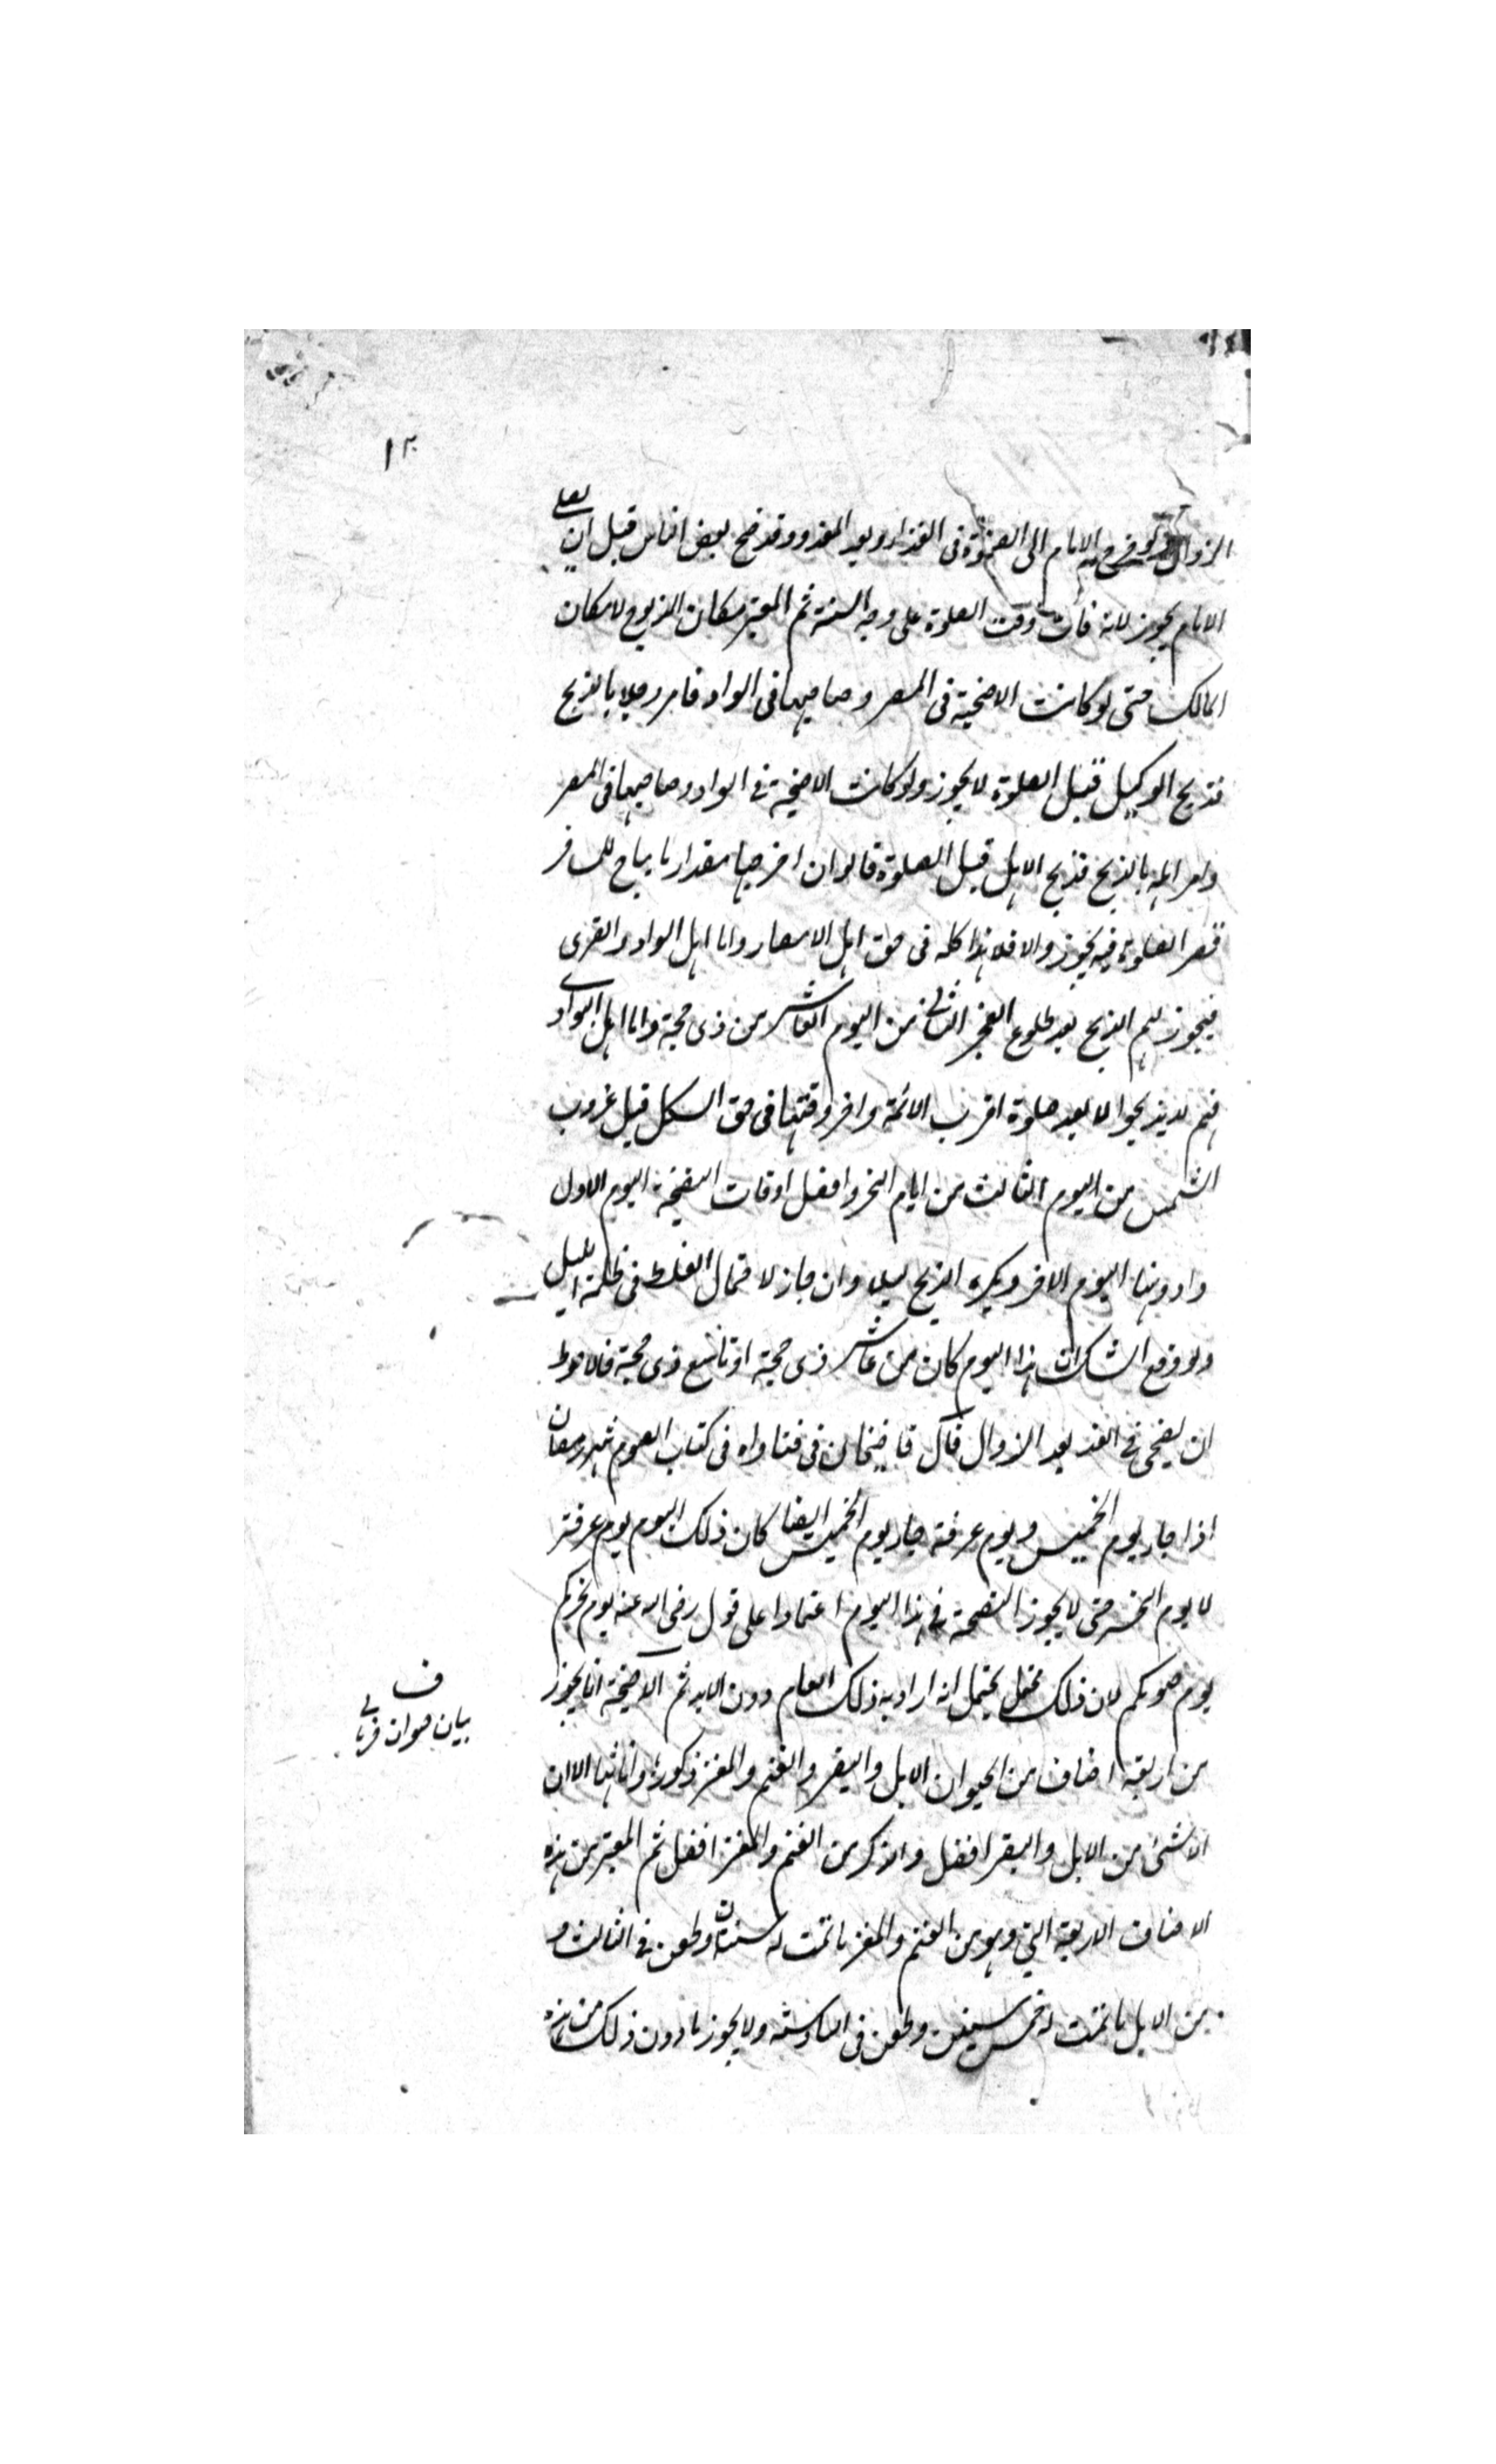 ١٣
الزوال ولو خرج الامام الى الصلوة فى الغد او بعد الغد وقد ضح بعض الناس قبل ان يصلى
الامام يجوز لانه فات وقت الصلوة على وجه السنة ثم المعتبر مكان المذبوح لا مكان
المالك حتى لو كانت الاضحية فى المصر وصاحبها فى السواد فامر رجلا بالذبح
فذبح الوكيل قبل الصلوة لا يجوز ولو كانت الاضحية فى السواد وصاحبها فى المصر
وامر اهله بالذبح فذبح الاهل قبل الصلوة قالوا ان اخرجها مقدار ما يباح للمسافر
قصر الصلوة فيه يجوز والا فلا هذا كله فى حق اهل الامصار واما اهل السواد والقرى
فيجوز لهم الذبح بعد طلوع الفجر الثانى من اليوم العاشر من ذى حجة واما اهل البوادى
فهم لا يذبحوا الا بعد صلوة اقرب الائمة واخر وقتها فى حق الكل قبل غروب
الشمس من اليوم الثالث من ايام النحر وافضل اوقات التضحية اليوم الاول
وادونها اليوم الاخر ويكره الذبح ليلا وان جاز لاحتمال الغلط فى ظلمة الليل
ولو وقع الشك ان هذا اليوم كان من عاشر ذى حجة او تاسع ذى حجة فالاحوط
ان يضحى فى الغد بعد الزوال قال قاضيخان فى فتاواه فى كتاب الصوم شهر رمضان
اذا جاء يوم الخميس ويوم عرفة جاء يوم الخميس ايضا كان ذلك اليوم يوم عرفة
لا يوم النحر حتى لا يجوز التضحية فى هذا اليوم اعتمادا على قول رضى الله عنه يوم نحركم
يوم صومكم لان ذلك محتمل يحتمل انه اراد به ذلك العام دون الابد ثم الاضحية انما يجوز
من اربعة اصناف من الحيوان الابل والبقر والغنم والمعز ذكورها واناثها الا ان
الانثى من الابل والبقر افضل والذكر من الغنم والمعز افضل ثم المعتبر من هذه
الاصناف الاربعة الثنى وهو من الغنم والمعز ما تمت له سنتان وطعن فى الثالث و
من الابل ما تمت له خمس سنين وطعن فى السادسة ولا يجوز ما دون ذلك من هذه
ف
بيان حيوان قربانى